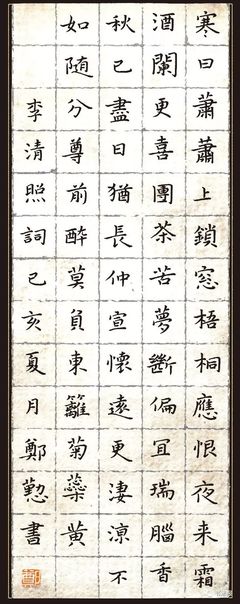 寒日蕭蕭上鎖窓梧桐應恨夜来霜
酒闌更喜團茶苦夢斷偏宜瑞腦香
秋已盡日猶長仲宣懷遠更淒涼不
如随分尊前醉莫負東籬菊蘂黄
李清照詞己亥夏月鄭懃書